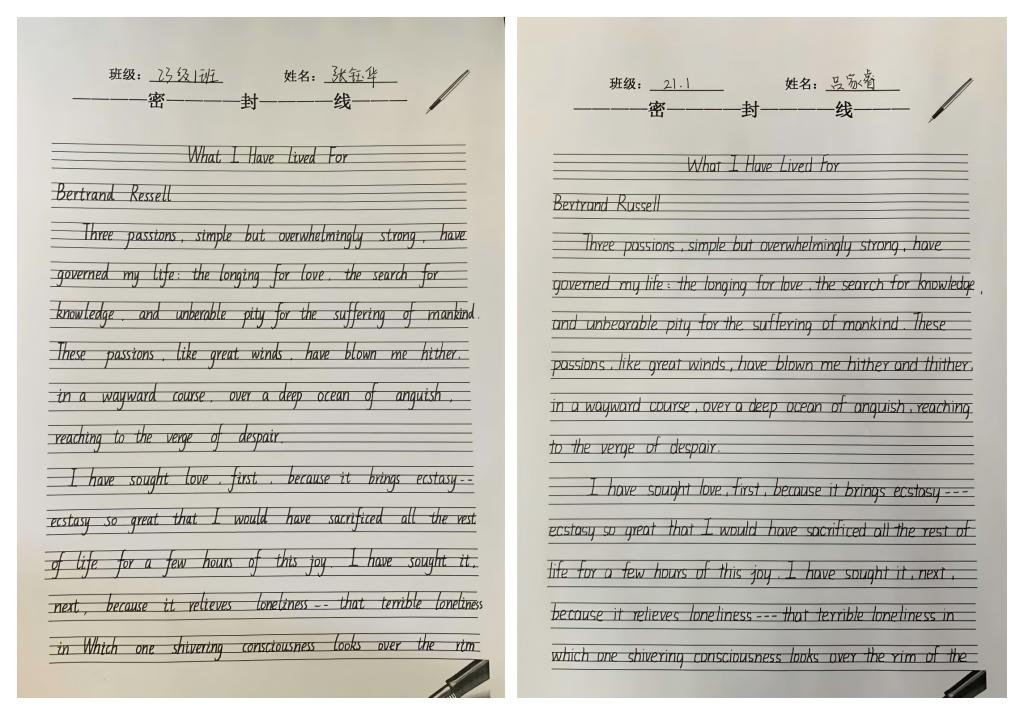 班级: 23级1班 姓名: 张钰华
密 封 线
What I Have Lived For
Bertrand Ressell
Three passions, simple but overwhelmingly strong, have
governed my life: the longing for love, the search for
knowledge, and unberable pity for the suffering of mankind.
These passions, like great winds, have blown me hither,
in a wayward course, over a deep ocean of anguish,
reaching to the verge of despair.
I have sought love, first, because it brings ecstasy--
ecstasy so great that I would have sacrificed all the rest
of life for a few hours of this joy. I have sought it,
next, because it relieves loneliness-- that terrible loneliness
in Which one shivering consciousness looks over the rim
班级: 21.1 姓名: 吕家睿
密 封 线
What I Have Lived For
Bertrand Russell
Three passions, simple but overwhelmingly strong, have
governed my life: the longing for love, the search for knowledge,
and unbearable pity for the suffering of mankind. These
passions, like great winds, have blown me hither and thither,
in a wayward course, over a deep ocean of anguish, reaching
to the verge of despair.
I have sought love, first, because it brings ecstasy---
ecstasy so great that I would have sacrificed all the rest of
life for a few hours of this joy. I have sought it, next,
because it relieves loneliness---that terrible loneliness in
which one shivering consciousness looks over the rim of the